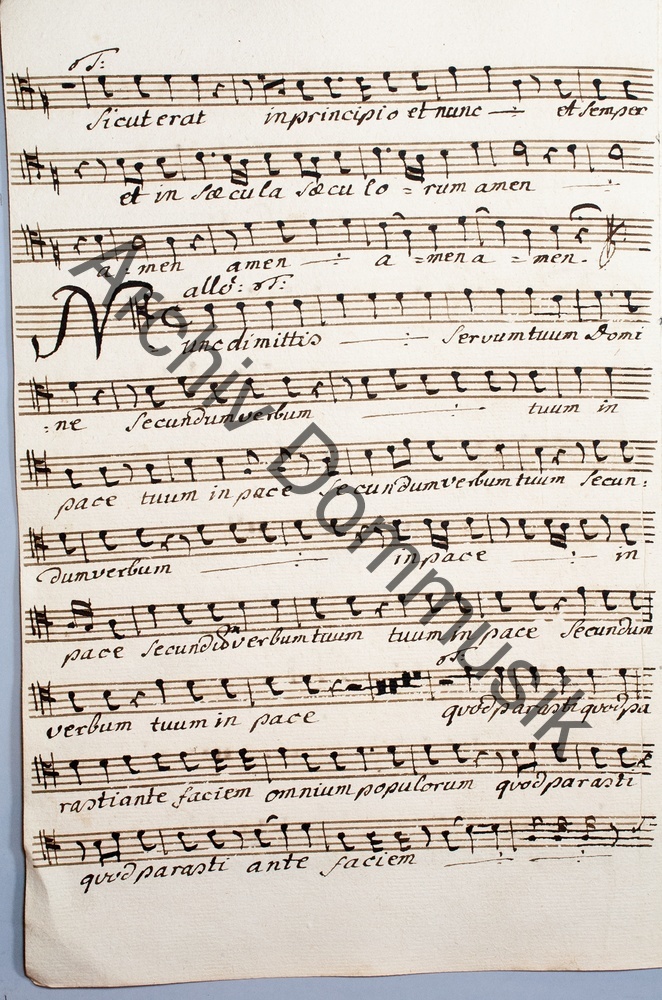 Sicut erat in principio et nunc et semper
et in sæcula sæculo = rum amen
a - men amen a = men a = men.
allo:
Nunc dimittis servum tuum Domi
= ne secundum verbum tuum in
pace tuum in pace secundum verbum tuum secun =
dum verbum in pace in
pace secundum verbum tuum tuum in pace secundum
verbum tuum in pace quod parasti quod pa
rasti ante faciem omnium populorum quod parasti
quod parasti ante faciem
Archiv Dommusik